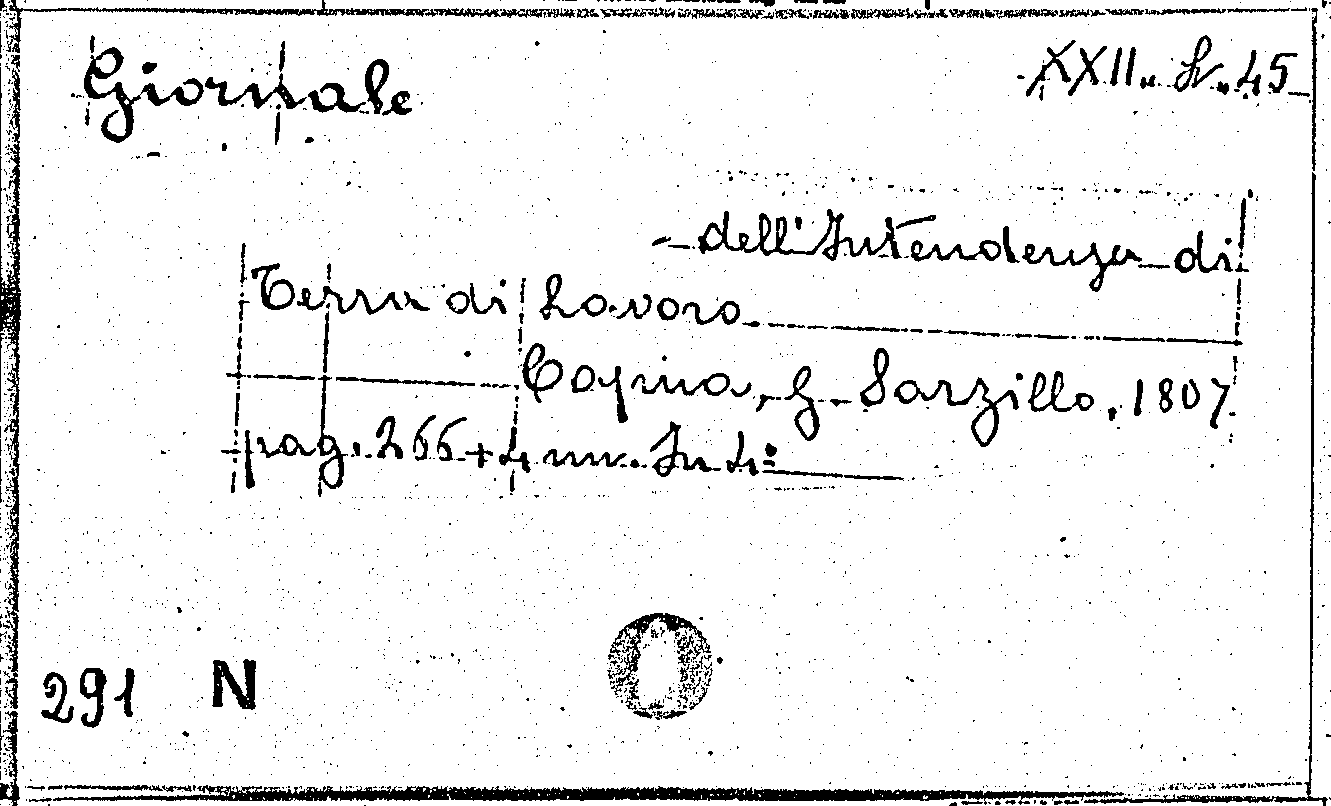 Giornale
XXII. Sv. 45
- dell'Intendenza di
Terra di Lavoro
Capua, G. Sarzillo, 1807
pag. 266 + 4 nn. In 4°
291 N